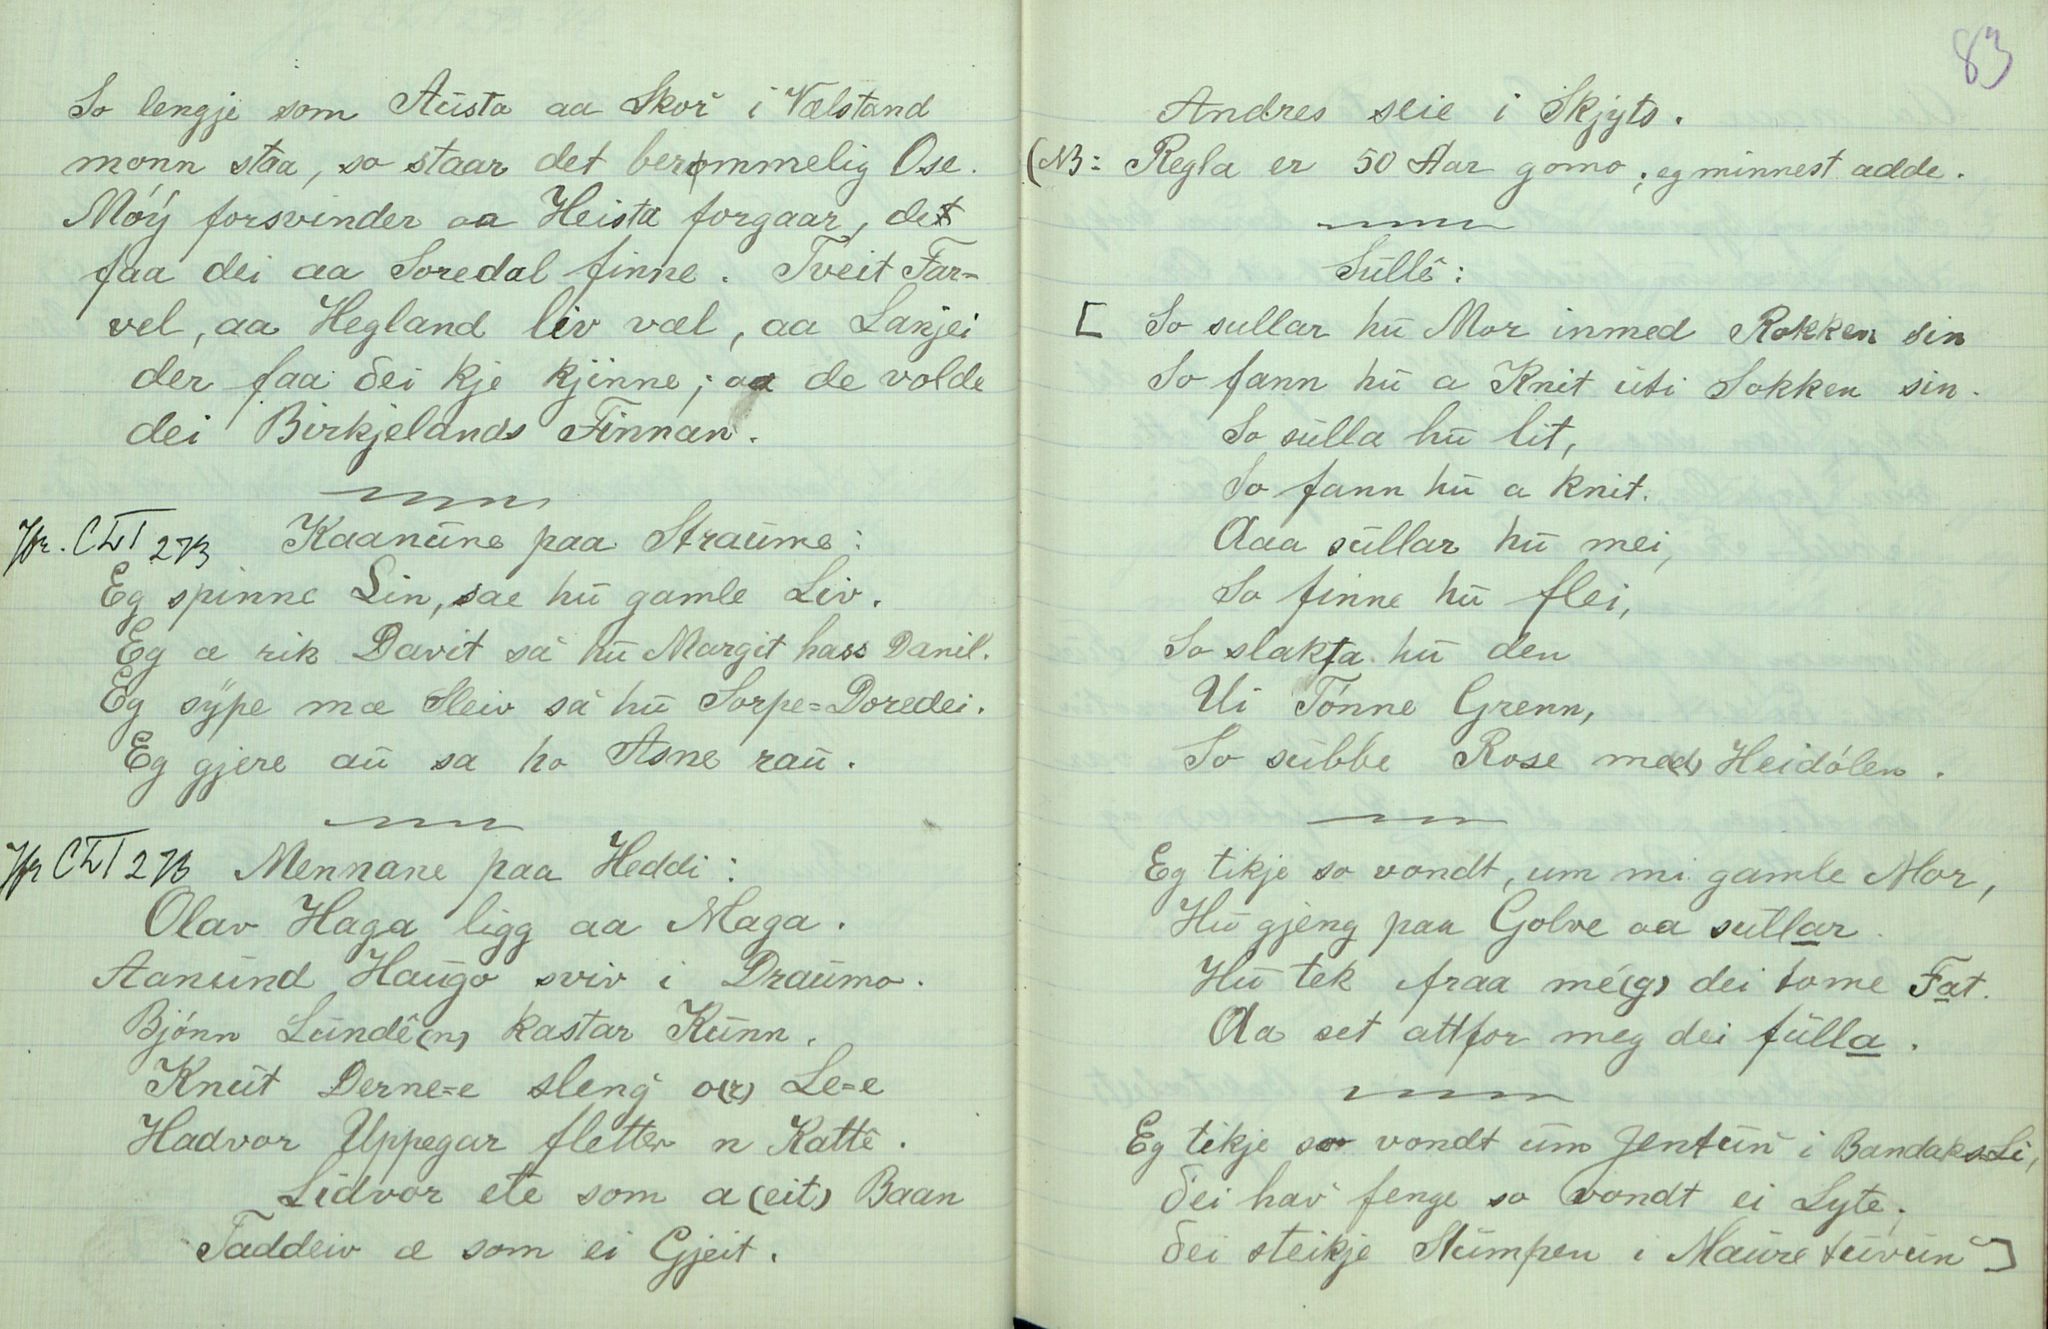 So lengje som Aústa aa Skor i Vælstand
monn staa, so staar det berømmelig Ose.
Móÿ forsvinder aa Heista forgaar, det
faa dei aa Soredal finne. Tveit Far-
vel, aa Hegland liv væl, aa Lanjei
der faa ðei kje kjinne; aa de volde
dei Birkjelands Finnan.
Jfr. CLI 273 Kaanūne paa Straūme:
Eg spinne Lin, sae hū gamle Liv.
Eg æ rik Davit sa hū Margit hass Danil.
Eg sÿpe mæ Sleiv sa hū Sorpe=Doredei.
Eg gjere aū sa ho Asne raū.
Jfr CLI 273 Mennane paa Heddi:
Olav Haga ligg aa Maga.
Aanūnd Haūgo sviv i Draūmo.
Bjónn Lūndê(n) kastar Kūnn.
Knūt Derne=e sleng o(r) Le=e
Hadvor Uppegar fletter n Kattê.
Lidvor ete som a (eit) Baan
Taddeiv æ som ei Gjeit.
83
Andres seie i Skjyts.
(NB: Regla er 50 Aar gomo; eg minnest adde.
Sūllê:
[ So sullar hū Mor inmed Rokken sin
So fann hū a Knit ūti Sokken sin.
So sūlla hū lit,
So fann hū a knit.
Aaa sūllar hū mei,
So finne hū flei,
So slakta hū den
Ui Tónne Grenn,
So sūbbe Rose me(d) Heidólen.
Eg tikje so vondt, um mi gamle Mor,
Hū gjeng paa Golve aa sūllar.
Hū tek fraa mé(g) dei tome Fat.
Aa set attfor meg dei fūlla.
Eg tikje so vondt ūm Jentūn i Bandaks-Li,
ðei hav fenge so vondt ei Lyte;
ðei steikje Stūmpen i Maūretūvūn ]